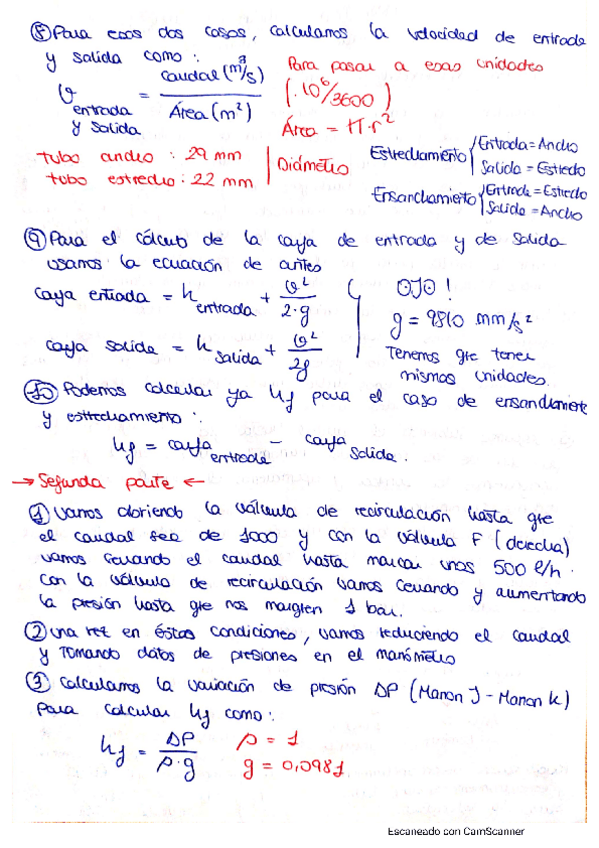 ⑧ Para esos dos casos, calculamos la velocidad de entrada
y salida como:
v entrada y salida = caudal (m³/s) / Área (m²)
Para pasar a esas unidades
(·10⁶/3600)
Área = π·r²
tubo ancho: 29 mm
tubo estrecho: 22 mm
Diámetro
Estrechamiento { Entrada = Ancho
Salida = Estrecho
Ensanchamiento { Entrada = Estrecho
Salida = Ancho
⑨ Para el cálculo de la carga de entrada y de salida
usamos la ecuación de antes
carga entrada = h entrada + v²/2·g
carga salida = h salida + v²/2g
OJO!
g = 9810 mm/s²
Tenemos que tener
mismas unidades.
⑩ Podemos calcular ya hf para el caso de ensanchamiento
y estrechamiento:
hf = carga entrada − carga salida.
→ Segunda parte ←
① Vamos abriendo la válvula de recirculación hasta que
el caudal sea de 1000 y con la válvula F (derecha)
vamos cerrando el caudal hasta marcar unos 500 l/h.
Con la válvula de recirculación vamos cerrando y aumentando
la presión hasta que nos marquen 1 bar.
② una vez en éstas condiciones, vamos reduciendo el caudal
y tomando datos de presiones en el manómetro
③ Calculamos la variación de presión DP (Manom J - Manom K)
para calcular hf como:
hf = DP / ρ·g
ρ = 1
g = 0,0981
Escaneado con CamScanner